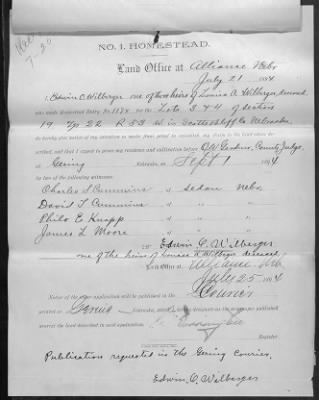 No. 1. HOMESTEAD.
Land Office at Alliance Nebr
July 21 1894
I, Edwin C Wilberger one of the heirs of Louisa A Wilberger, deceased
who made Homestead Entry, No. for the Lots 3 & 4 of section
19 Tp 22 R 53 W in Scotts bluff Co Nebraska
do hereby give notice of my intention to make final proof to establish my claim to the land above
described, and that I expect to prove my residence and cultivation before County Judge
at Gering Nebraska, on Sept 1 1894
by two of the following witnesses:
Charles S. Cummins of Sedan Nebr.
David T Cummins " "
Philo E Knapp " "
James L Moore " "
Edwin C. Wilberger
one of the heirs of Louisa A Wilberger deceased
Land Office at Alliance Neb
July 25 1894
Notice of the above application will be published in the Courier
printed at Gering Nebraska, which I hereby designate as the newspaper published
nearest the land described in said application.
Register.
Publication requested in the Gering Courier.
Edwin C. Wilberger